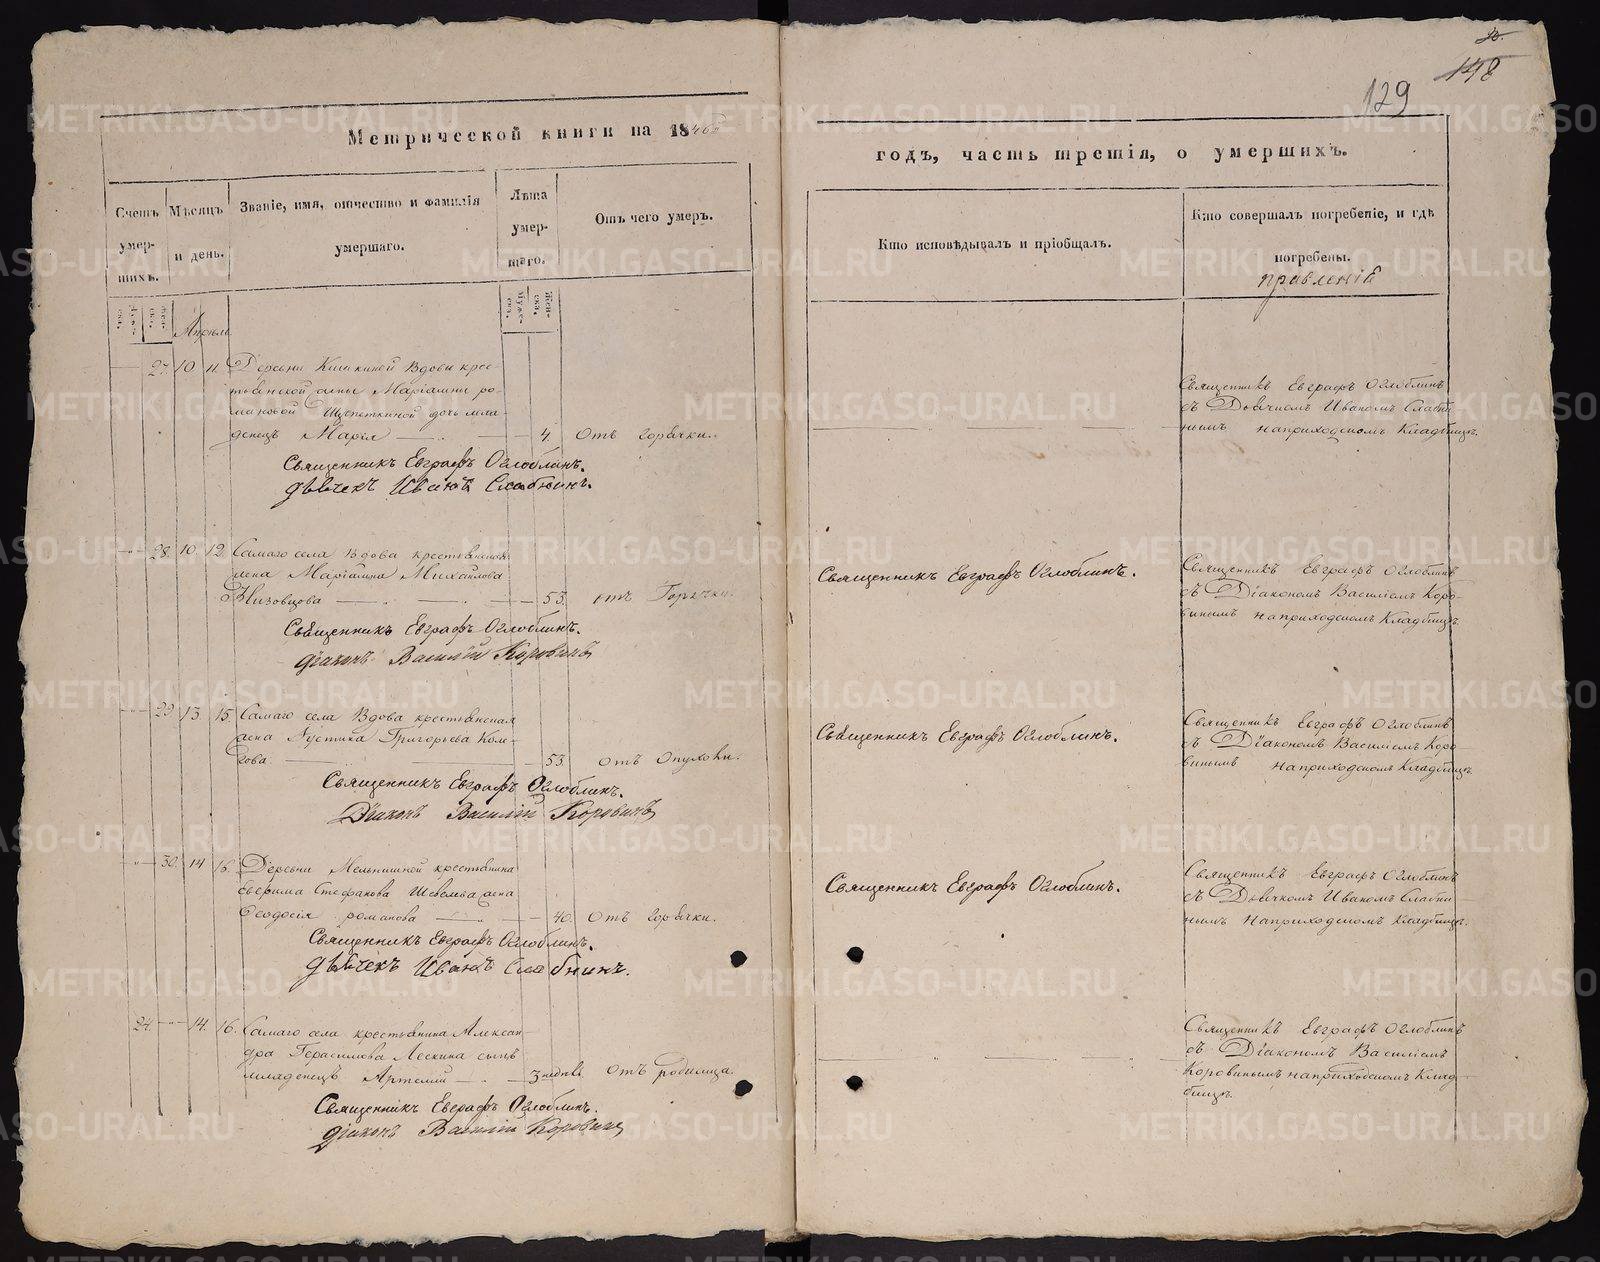 Метрической книги на 1846й
Счетъ умер-шихъ.
Мѣсяцъ и день.
Званіе, имя, отчество и фамилія умершаго.
Лѣта умер-шаго.
Отъ чего умеръ.
Апрѣля
27 10 11 Деревни Кишкиной Вдовы крес-
тьянской жены Маріамны Ро-
мановой Щепеткиной дочь мла-
денецъ Марія 4 Отъ горячки.
Священникъ Евграфъ Оглоблинъ.
Дьячекъ Иванъ Слабнинъ.
28. 10. 12. Самаго села Вдова крестьянская
жена Маріамна Михайлова
Низовцова 53. отъ Горячки.
Священникъ Евграфъ Оглоблинъ.
Діаконъ Василій Коровинъ
29 13. 15. Самаго села Вдова крестьянская
жена Устина Григорьева Коле-
гова 53. отъ Опухоли.
Священникъ Евграфъ Оглоблинъ.
Діаконъ Василій Коровинъ
30. 14 16. Деревни Мельнишной крестьянина
Стефанова жена
Феодосія Романова 40. Отъ горячки.
Священникъ Евграфъ Оглоблинъ.
Дьячекъ Иванъ Слабнинъ.
24. 14. 16. Самаго села крестьянина Алексан-
дра Герасимова сынъ
младенецъ 3 недѣл. Отъ родимца.
Священникъ Евграфъ Оглоблинъ.
Діаконъ Василій Коровинъ
148
129
годъ, часть третія, о умершихъ.
Кто исповѣдывалъ и пріобщалъ.
Кто совершалъ погребеніе, и гдѣ
погребены.
правленія
Священникъ Евграфъ Оглоблинъ
съ Дьячкомъ Иваномъ Слабни-
нымъ на приходскомъ Кладбищѣ.
Священникъ Евграфъ Оглоблинъ.
Священникъ Евграфъ Оглоблинъ
съ Діакономъ Василіемъ Коро-
винымъ на приходскомъ Кладбищѣ.
Священникъ Евграфъ Оглоблинъ.
Священникъ Евграфъ Оглоблинъ
съ Діакономъ Василіемъ Коро-
винымъ на приходскомъ Кладбищѣ.
Священникъ Евграфъ Оглоблинъ.
Священникъ Евграфъ Оглоблинъ
съ Дьячкомъ Иваномъ Слабни-
нымъ на приходскомъ Кладбищѣ.
Священникъ Евграфъ Оглоблинъ
съ Діакономъ Василіемъ
Коровинымъ на приходскомъ Клад-
бищѣ.
METRIKI.GASO-URAL.RU